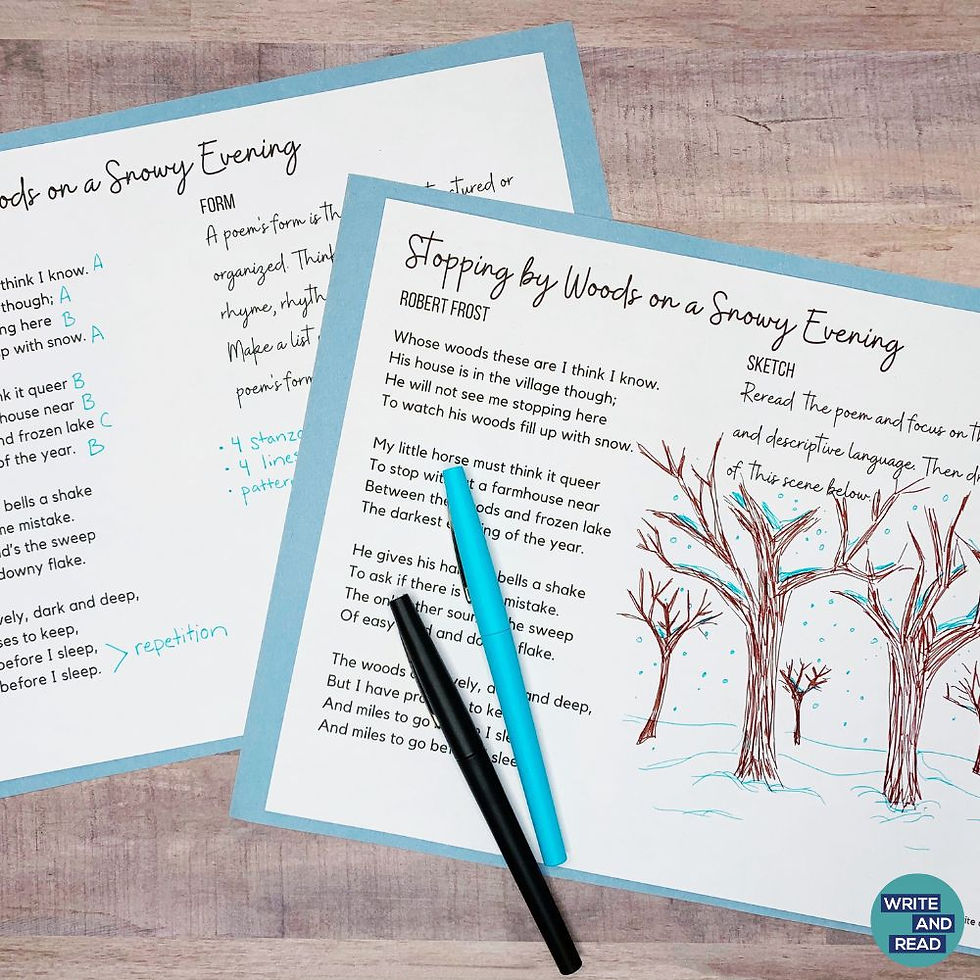 oods on a Snowy Evening
think I know. A
though; A
ng here B
p with snow. A
nk it queer B
house near B
nd frozen lake C
of the year. B
bells a shake
ne mistake.
d's the sweep
downy flake.
vely, dark and deep,
ses to keep,
before I sleep,
before I sleep.
> repetition
FORM
A poem's form is th ctured or
organized. Think
rhyme, rhyth
Make a list
poem's form
• 4 stanza
• 4 lines
• pattern
Stopping by Woods on a Snowy Evening
ROBERT FROST
Whose woods these are I think I know.
His house is in the village though;
He will not see me stopping here
To watch his woods fill up with snow.
My little horse must think it queer
To stop with t a farmhouse near
Between the ods and frozen lake
The darkest e ng of the year.
He gives his ha bells a shake
To ask if there is mistake.
The on ther soun he sweep
Of easy d and do flake.
The woods a vely, d and deep,
But I have pro to ke
And miles to go I sle
And miles to go be slee
SKETCH
Reread the poem and focus on th
and descriptive language. Then dr
of this scene below.
WRITE
AND
READ